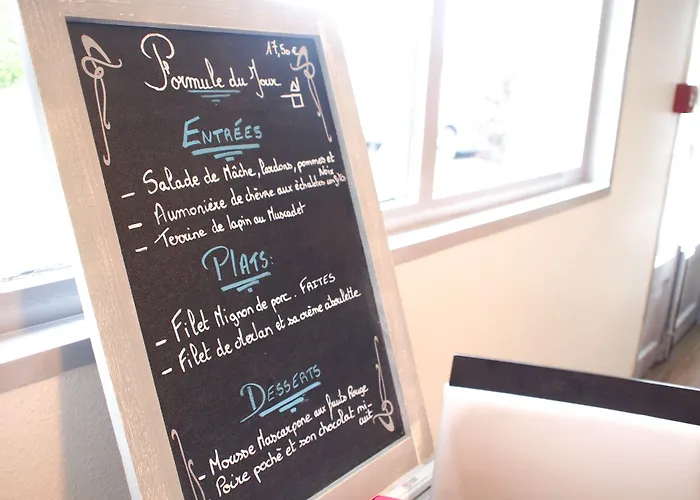 17,50€
Formule du Jour
ENTRÉES
- Salade de Mâche, Lardons, pommes et Noix
- Aumonière de chèvre aux échalotes confites
- Terrine de lapin au Muscadet
PLATS:
- Filet Mignon de porc. FRITES
- Filet de Merlan et sa crème ciboulette
DESSERTS
- Mousse Mascarpone aux fruits Rouge
Poire poché et son chocolat mi-
cuit